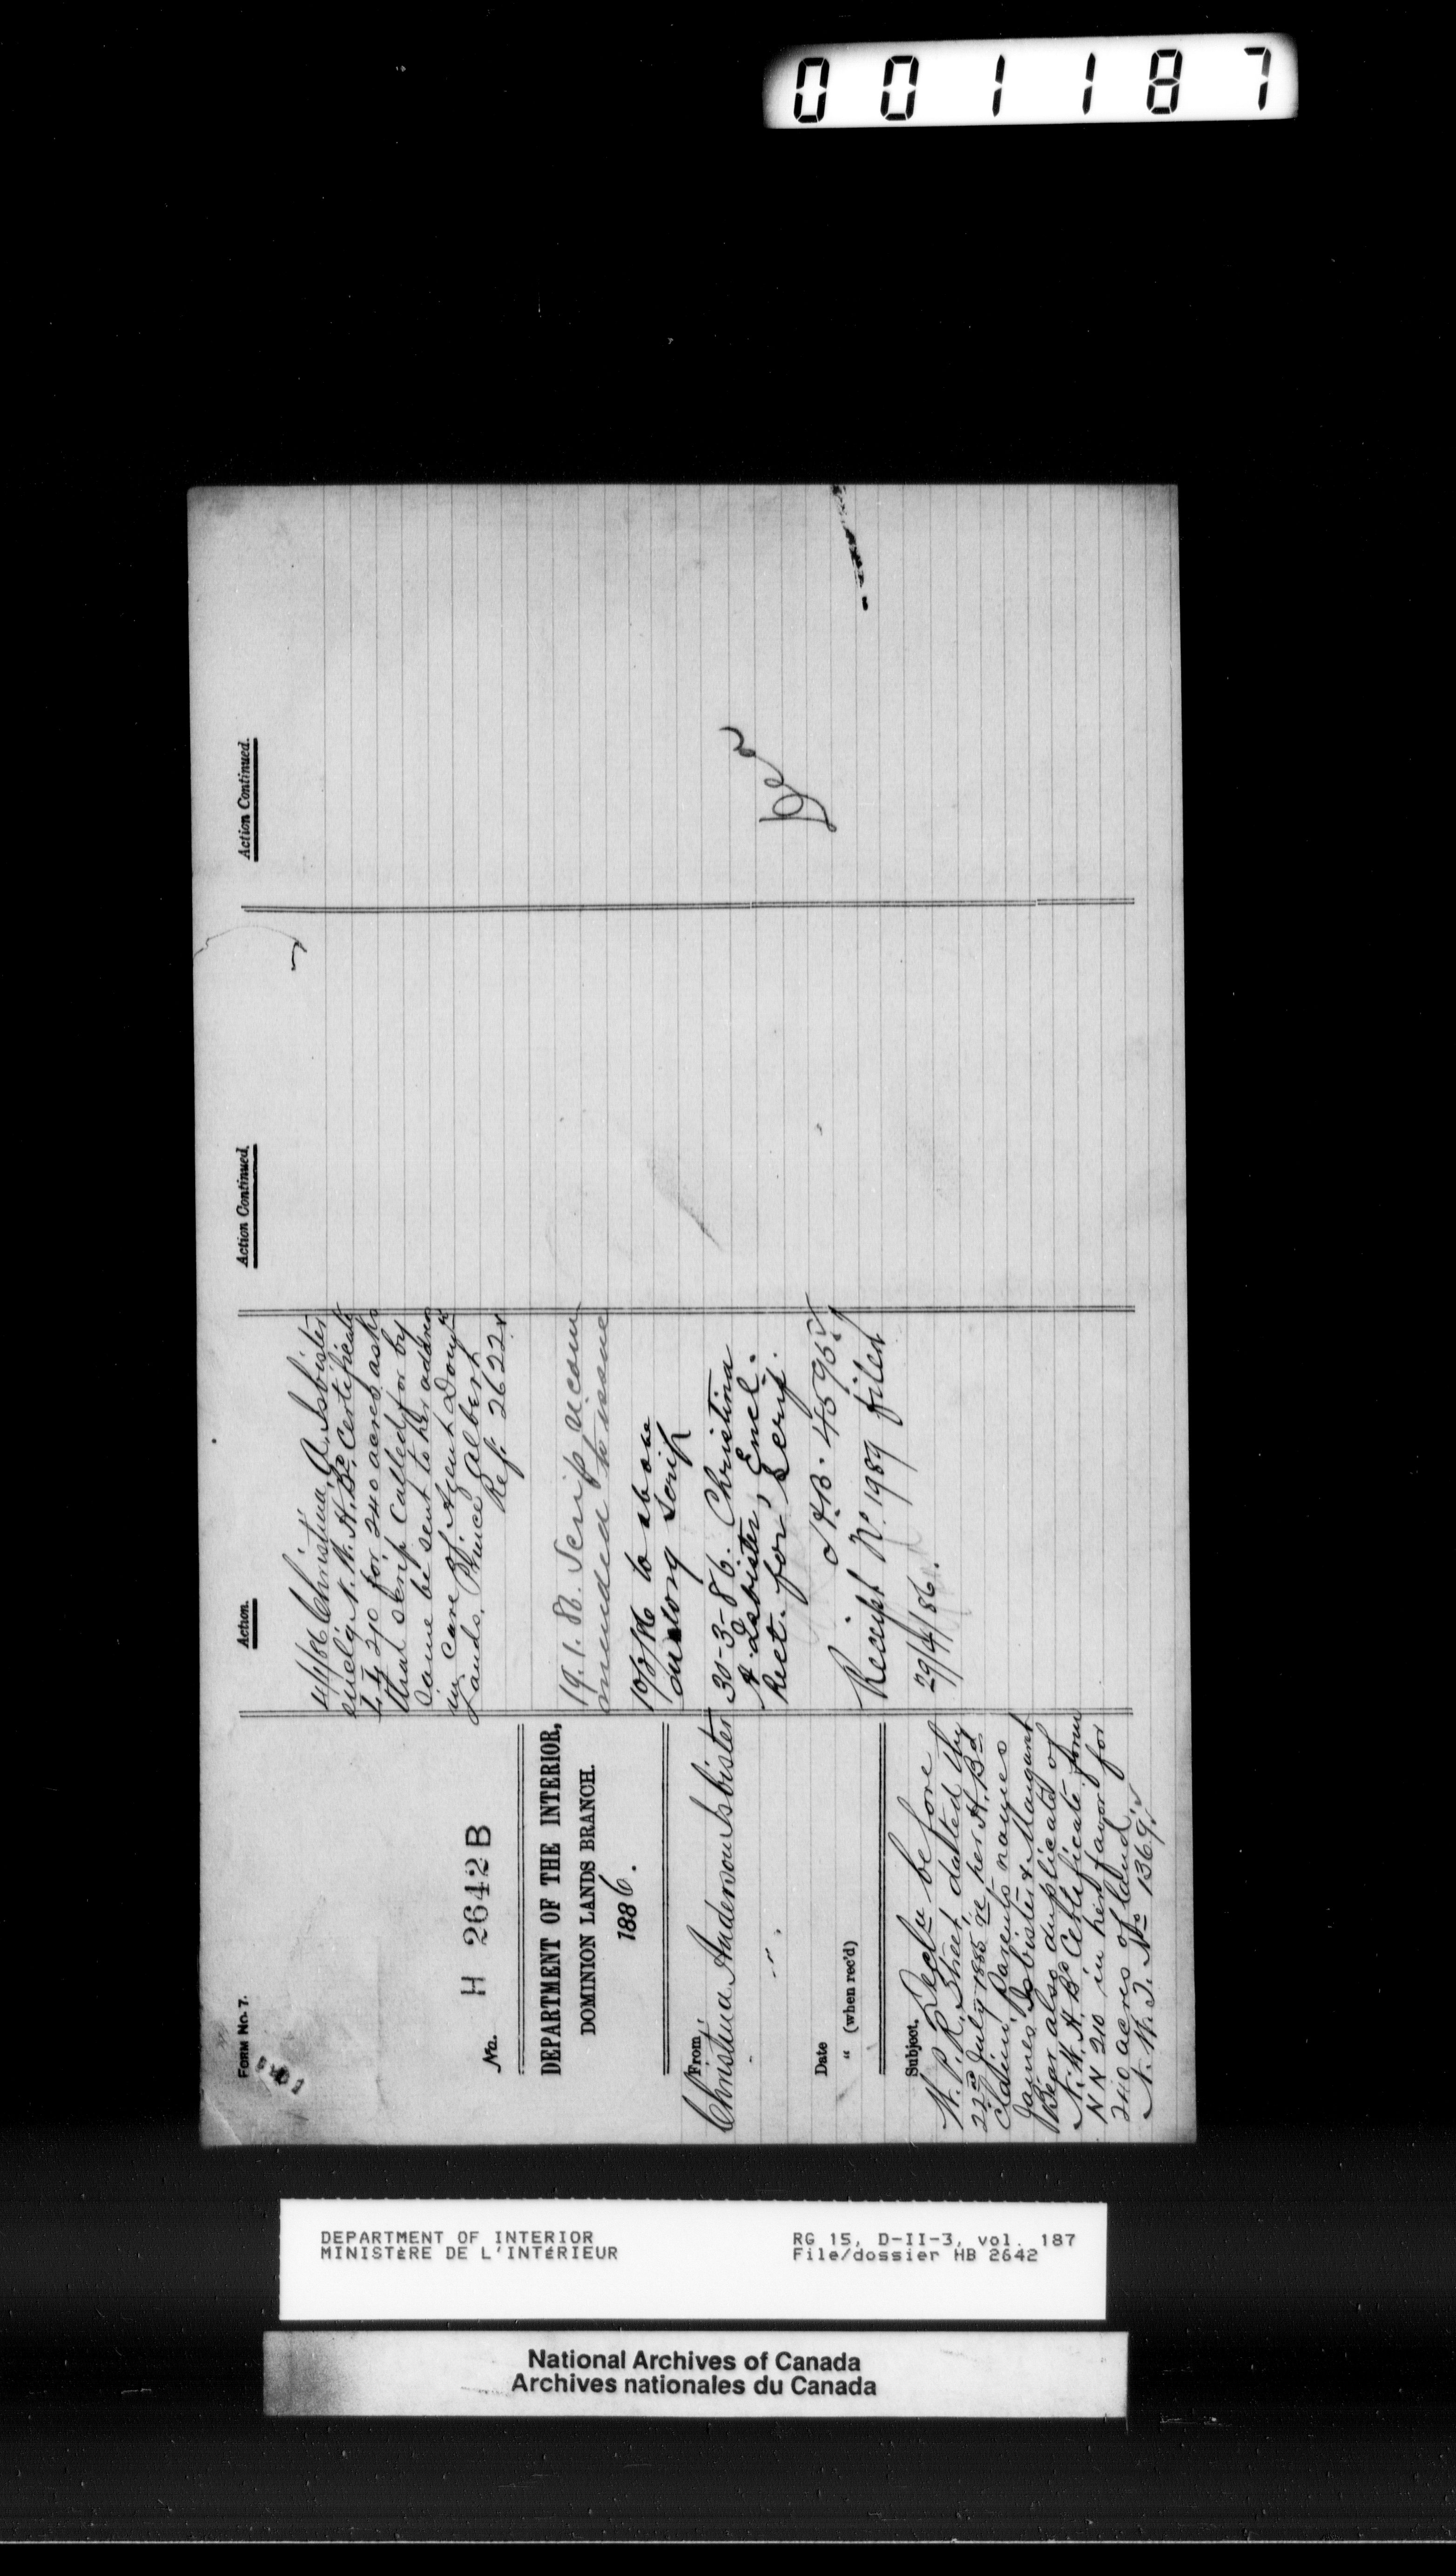 001187
FORM No. 7.
No. H 2642 B
DEPARTMENT OF THE INTERIOR,
DOMINION LANDS BRANCH.
1886.
From
Christina Anderson Isbister
Date
" (when rec'd)
Subject,
Decln before
W. P. R. Street, dated the
22d July 1885 re her H. Bd
claim, Parents names
James Isbister & Margaret
Bear also duplicate of
N. W. H. Bd Certificate form
N N 210 in her favor for
240 acres of land.
N. W. T. No 1369.
Action.
4/1/86 Christina A. Isbister
enclg. N. W. H. Bd Certificate
L. L. 210 for 240 acres asks
that scrip called for by
same be sent to her address
in care of Agent Dom
Lands, Prince Albert
Ref. 2622
19.1.86. Scrip recom
mended to issue
10/3/86 to above
enclosg Scrip
30-3-86. Christina
A. Isbister, Encl.
Rect. for Scrip.
H.B. 4595
Receipt No. 1989 filed
29/4/86.
Action Continued.
Action Continued.
DEPARTMENT OF INTERIOR
MINISTÈRE DE L'INTÉRIEUR
RG 15, D-II-3, vol. 187
File/dossier HB 2642
National Archives of Canada
Archives nationales du Canada